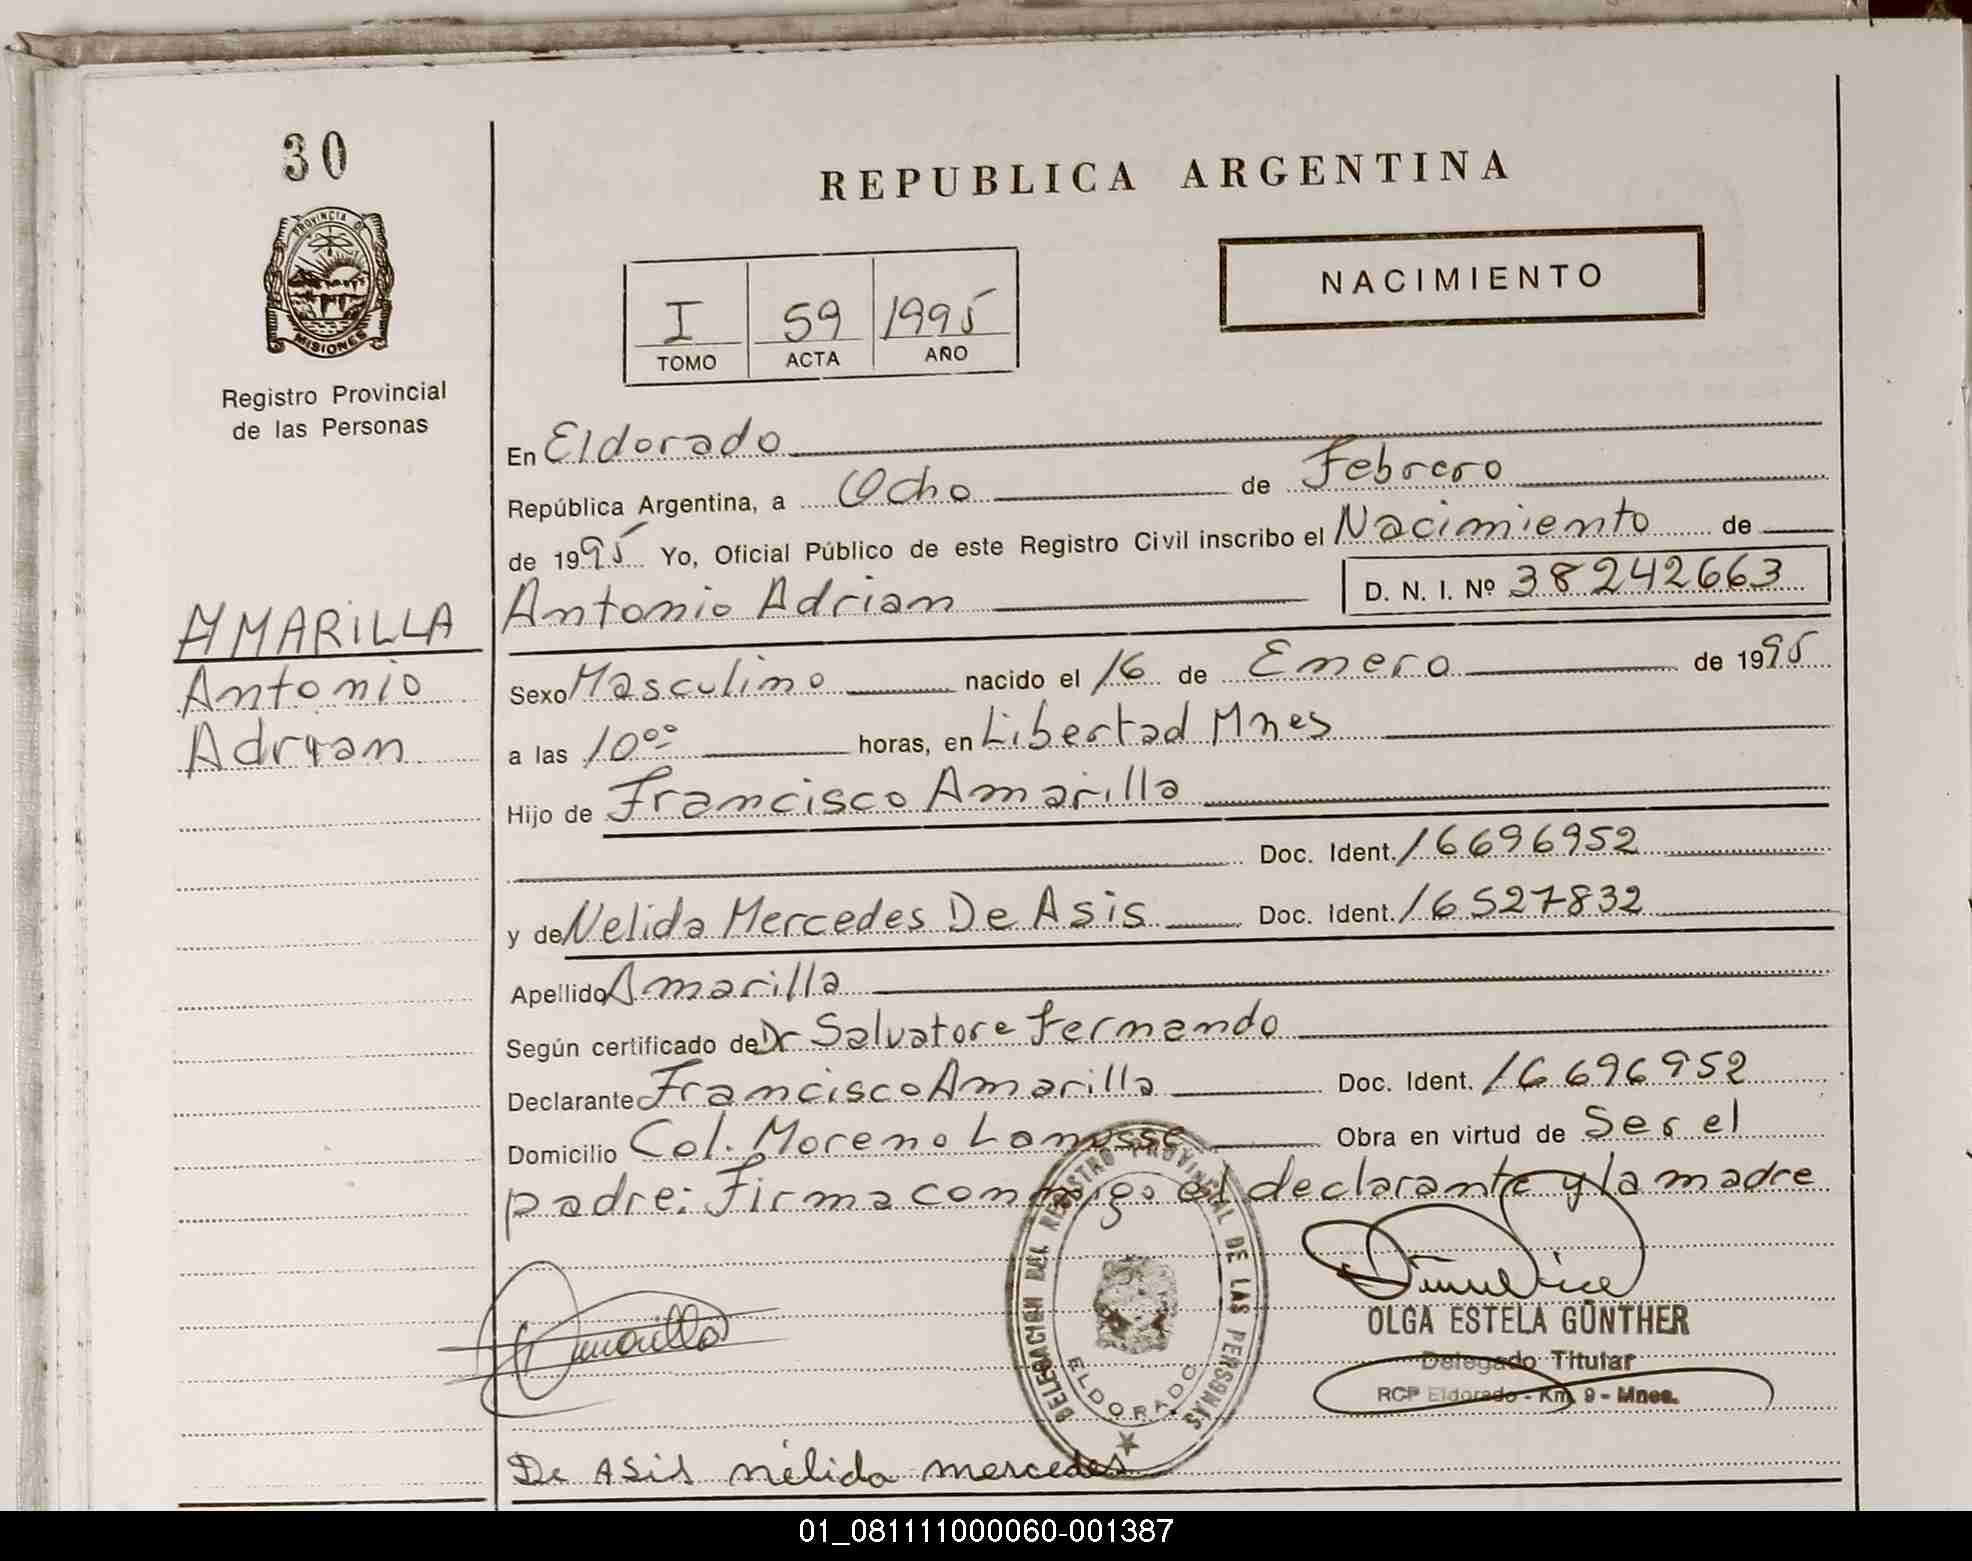 30
PROVINCIA DE
MISIONES
Registro Provincial
de las Personas
AMARILLA
Antonio
Adrian
REPUBLICA ARGENTINA
NACIMIENTO
I 59 1995
TOMO ACTA AÑO
En Eldorado
República Argentina, a Ocho de Febrero
de 1995 Yo, Oficial Público de este Registro Civil inscribo el Nacimiento de
Antonio Adrian D. N. I. Nº 38242663
Sexo Masculino nacido el 16 de Enero de 1995
a las 10⁰⁰ horas, en Libertad Mnes
Hijo de Francisco Amarilla
Doc. Ident. 16696952
y de Nelida Mercedes De Asis Doc. Ident. 16527832
Apellido Amarilla
Según certificado de Dr Salvatore Fernando
Declarante Francisco Amarilla Doc. Ident. 16696952
Domicilio Col. Moreno Lanusse Obra en virtud de Ser el
padre: Firma conmigo el declarante y la madre
Amarilla
DELEGACION DEL REGISTRO PROVINCIAL DE LAS PERSONAS
ELDORADO
OLGA ESTELA GÜNTHER
Delegado Titular
RCP Eldorado - Km. 9 - Mnes.
De Asis nélida mercedes
01_081111000060-001387